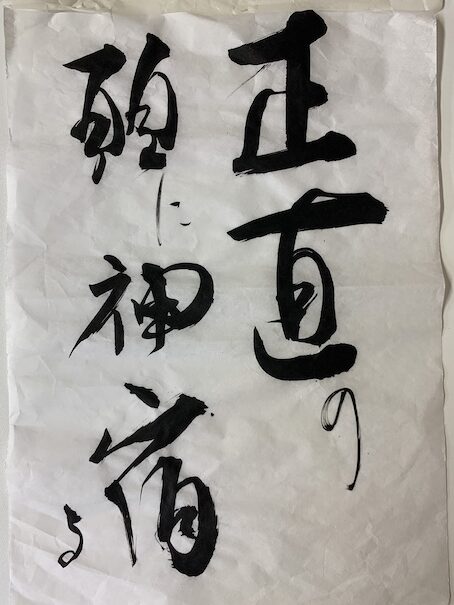 正直の
頭に神宿る